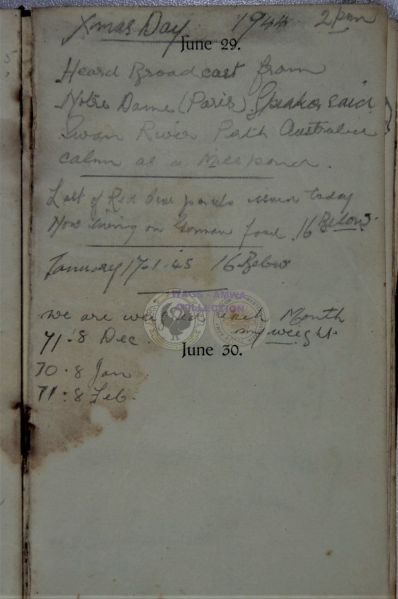 Xmas Day 1944 2 pm
June 29.
Heard Broadcast from
Notre Dame (Paris) Speaker said
Swan River Perth Australia
calm as a Millpond.
Last of Red X parcels issued today
Now living on German food. 16 Below.
January 17-1-45 16 Below
WAGS - AMWA
COLLECTION
we are weighed each Month
71.8 Dec my weight.
June 30.
70.8 Jan.
71.8 Feb.